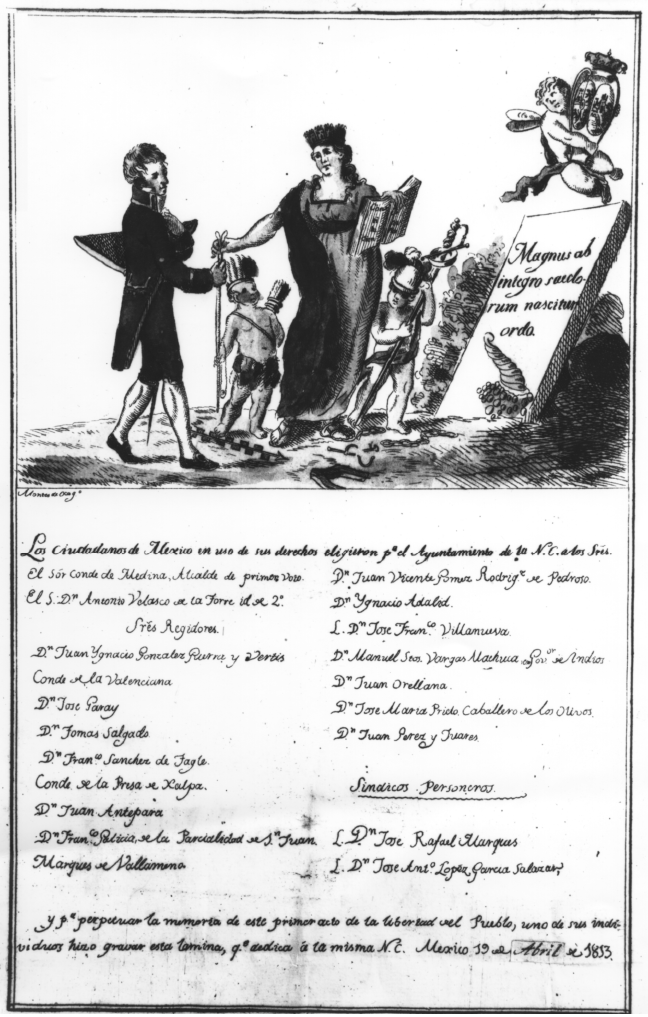 Magnus ab
integro saeclo-
rum nascitur
ordo.
Los Ciudadanos de Mexico en uso de sus derechos eligieron pª el Ayuntamiento de la N.C. a los Sres.
El Sôr Conde de Medina, Alcalde de primer Voto.
El S. Dⁿ Antonio Velasco de la Torre id de 2º
Sres Regidores.
Dⁿ Juan Ygnacio Gonzalez Guerra y Vertis
Conde de la Valenciana
Dⁿ Jose Garay
Dⁿ Tomas Salgado
Dⁿ Franᶜᵒ Sanchez de Tagle
Conde de la Presa de Xalpa.
Dⁿ Juan Antepara
Dⁿ Franᶜᵒ Galicia, de la Parcialidad de Sⁿ Juan
Marques de Vallamena
Dⁿ Juan Vicente Gomez Rodrigᶻ de Pedroso.
Dⁿ Ygnacio Adalid.
L. Dⁿ Jose Franᶜᵒ Villanueva.
Dⁿ Manuel Stos. Vargas Machuca, Govᵒʳ de Indios
Dⁿ Juan Orellana.
Dⁿ Jose Maria Prieto Caballero de los Olivos.
Dⁿ Juan Perez y Juares.
Sindicos Personeros.
L. Dⁿ Jose Rafael Marques
L. Dⁿ Jose Antº Lopez Garcia Salazar,
y pª perpetuar la memoria de este primer acto de la libertad del Pueblo, uno de sus indi-
viduos hizo gravar esta lamina, qᵉ dedica à la misma N.C. Mexico 19 de Abril de 1813.